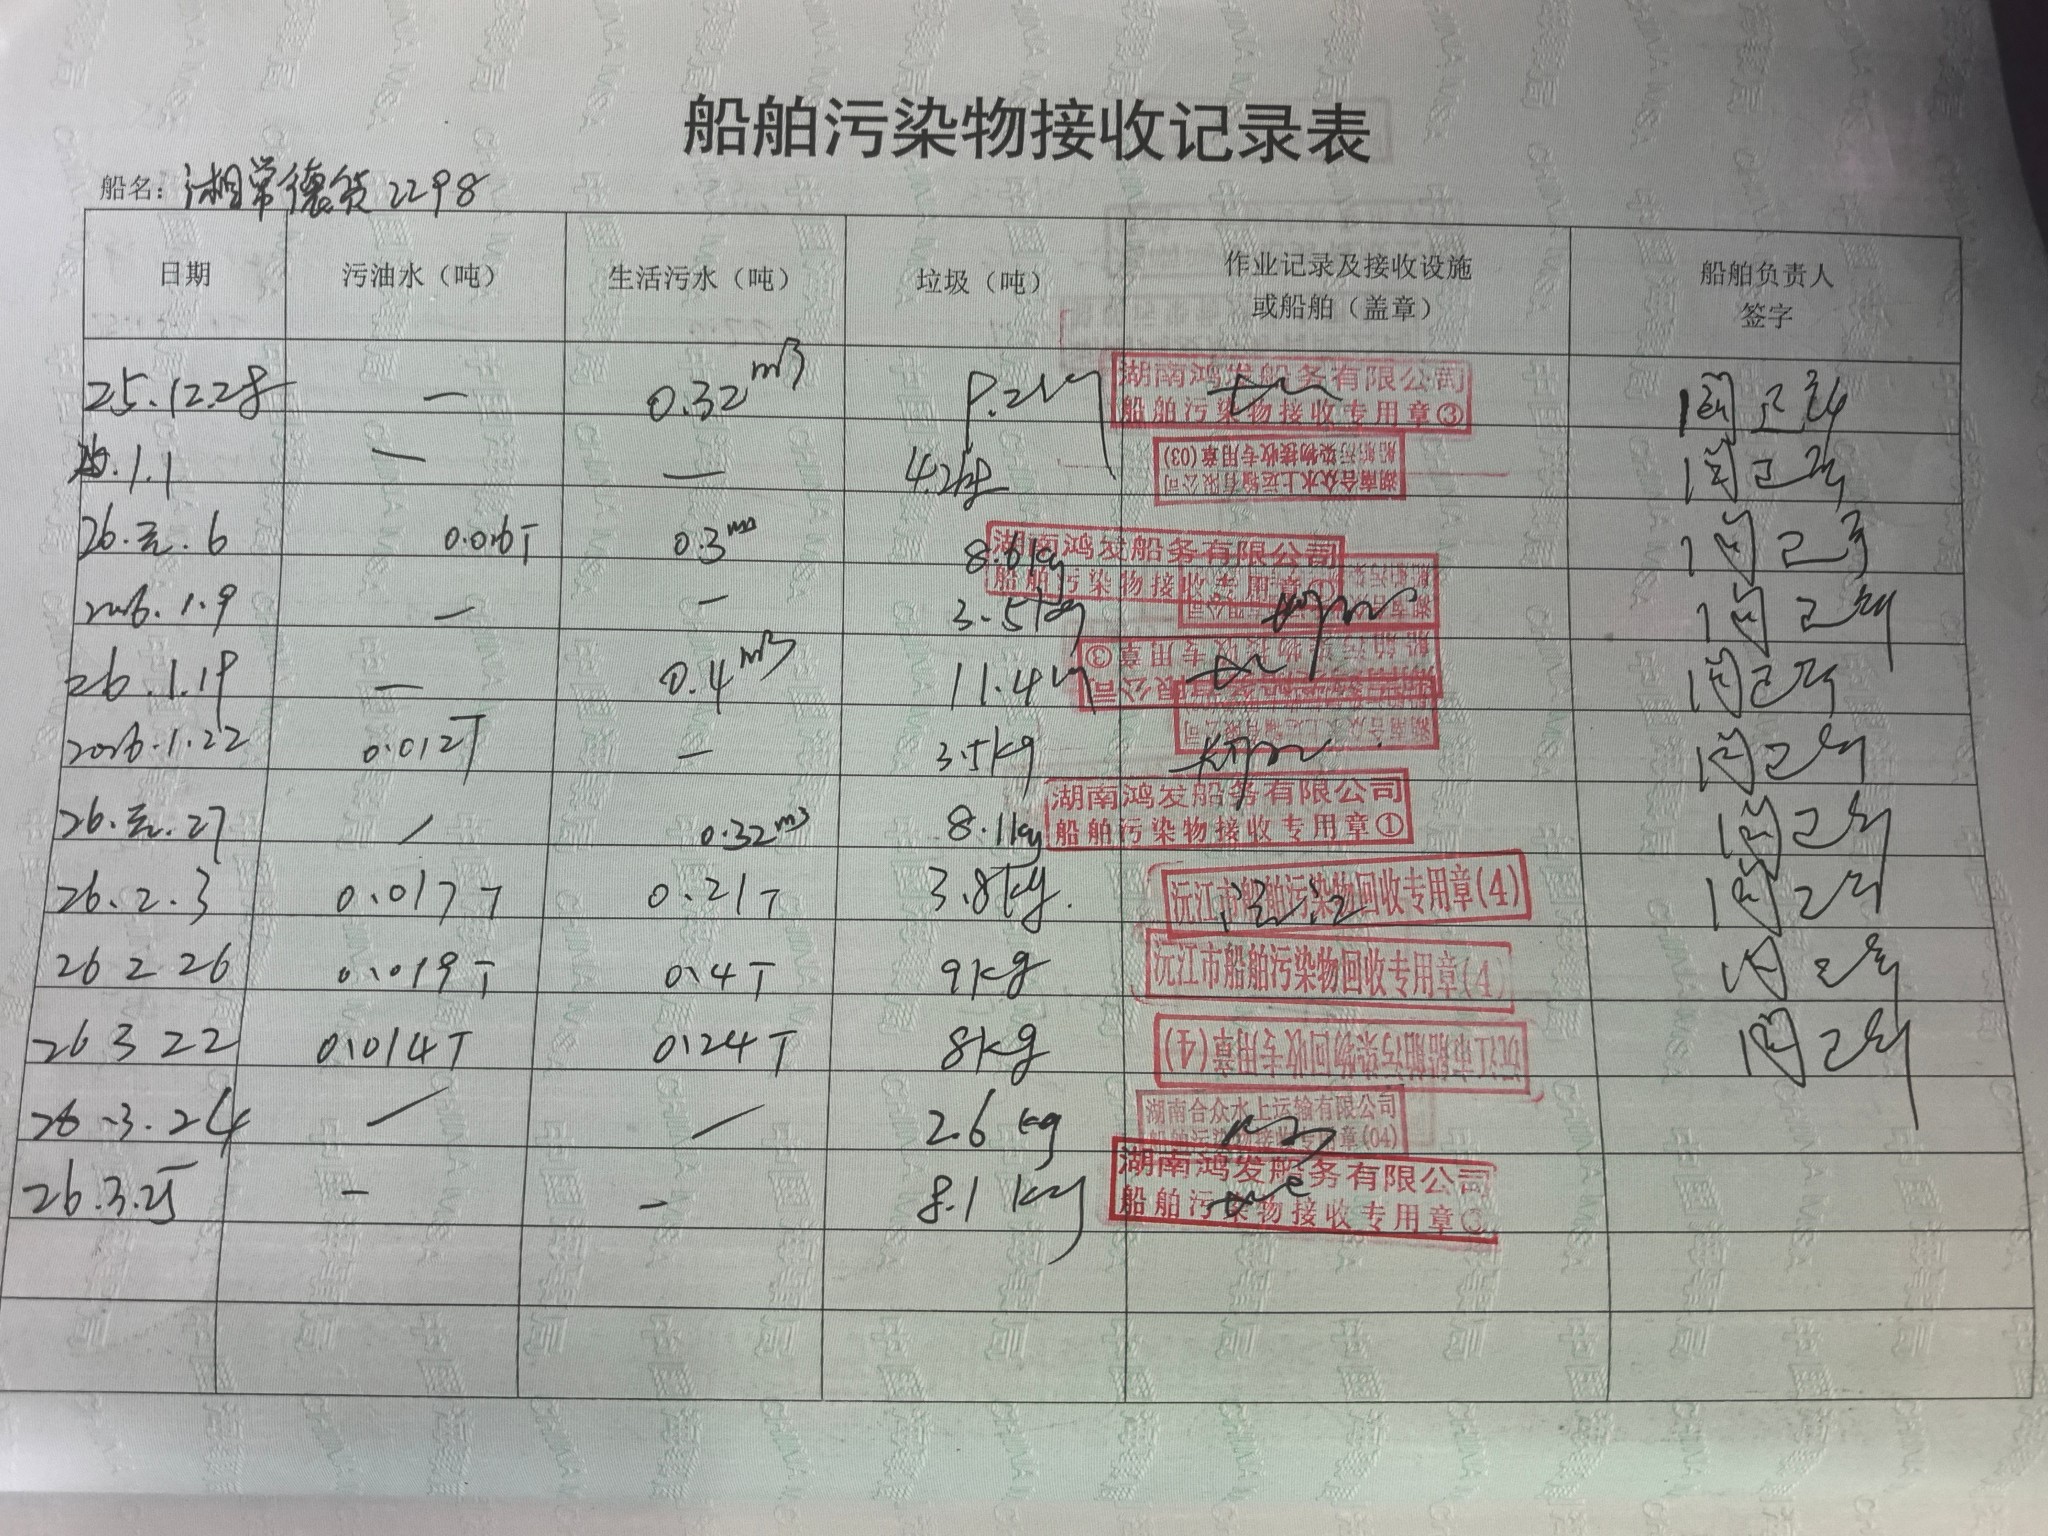 船舶污染物接收记录表
船名：湘常德货2298
日期 污油水（吨） 生活污水（吨） 垃圾（吨） 作业记录及接收设施或船舶（盖章） 船舶负责人签字
25.12.28 — 0.32m³ 湖南鸿发船务有限公司 船舶污染物接收专用章③
.1.1 — — 4.2kg 湖南合众水上运输有限公司 船舶污染物接收专用章(03)
26.元.6 0.016T 0.3m³ 8.6kg 湖南鸿发船务有限公司 船舶污染物接收专用章①
2026.1.9 — — 3.5kg
26.1.19 — 0.4m³ 11.4kg 船舶污染物接收专用章③
2026.1.22 0.012T — 3.5kg 湖南合众水上运输有限公司
26.元.27 / 0.32m³ 8.1kg 湖南鸿发船务有限公司 船舶污染物接收专用章①
26.2.3 0.017T 0.21T 3.8kg. 沅江市船舶污染物回收专用章(4)
26 2 26 0.019T 0.4T 9kg 沅江市船舶污染物回收专用章(4)
26 3 22 0.014T 0.24T 8kg 沅江市船舶污染物回收专用章(4)
26.3.24 / / 2.6kg 湖南合众水上运输有限公司 船舶污染物接收专用章(04)
26.3.25 — — 8.1kg 湖南鸿发船务有限公司 船舶污染物接收专用章